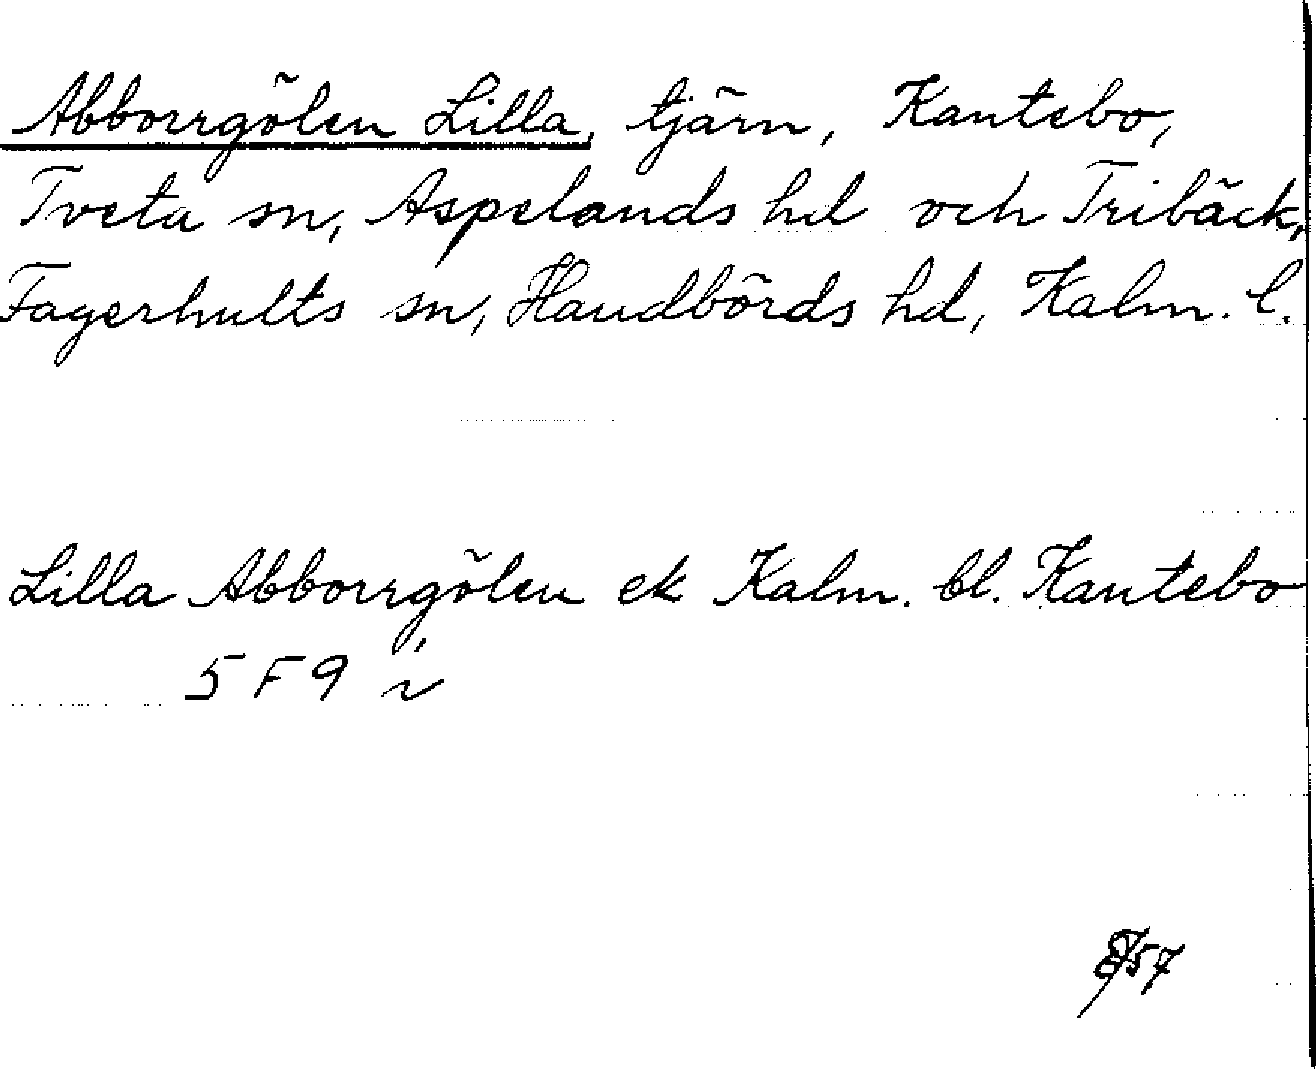 Abborrgölen Lilla, tjärn, Kantebo,
Tveta sn, Aspelands hd och Tribäck,
Fagerhults sn, Handbörds hd, Kalm. l.
Lilla Abborrgölen ek Kalm. bl. Kantebo
5 F 9 i
57